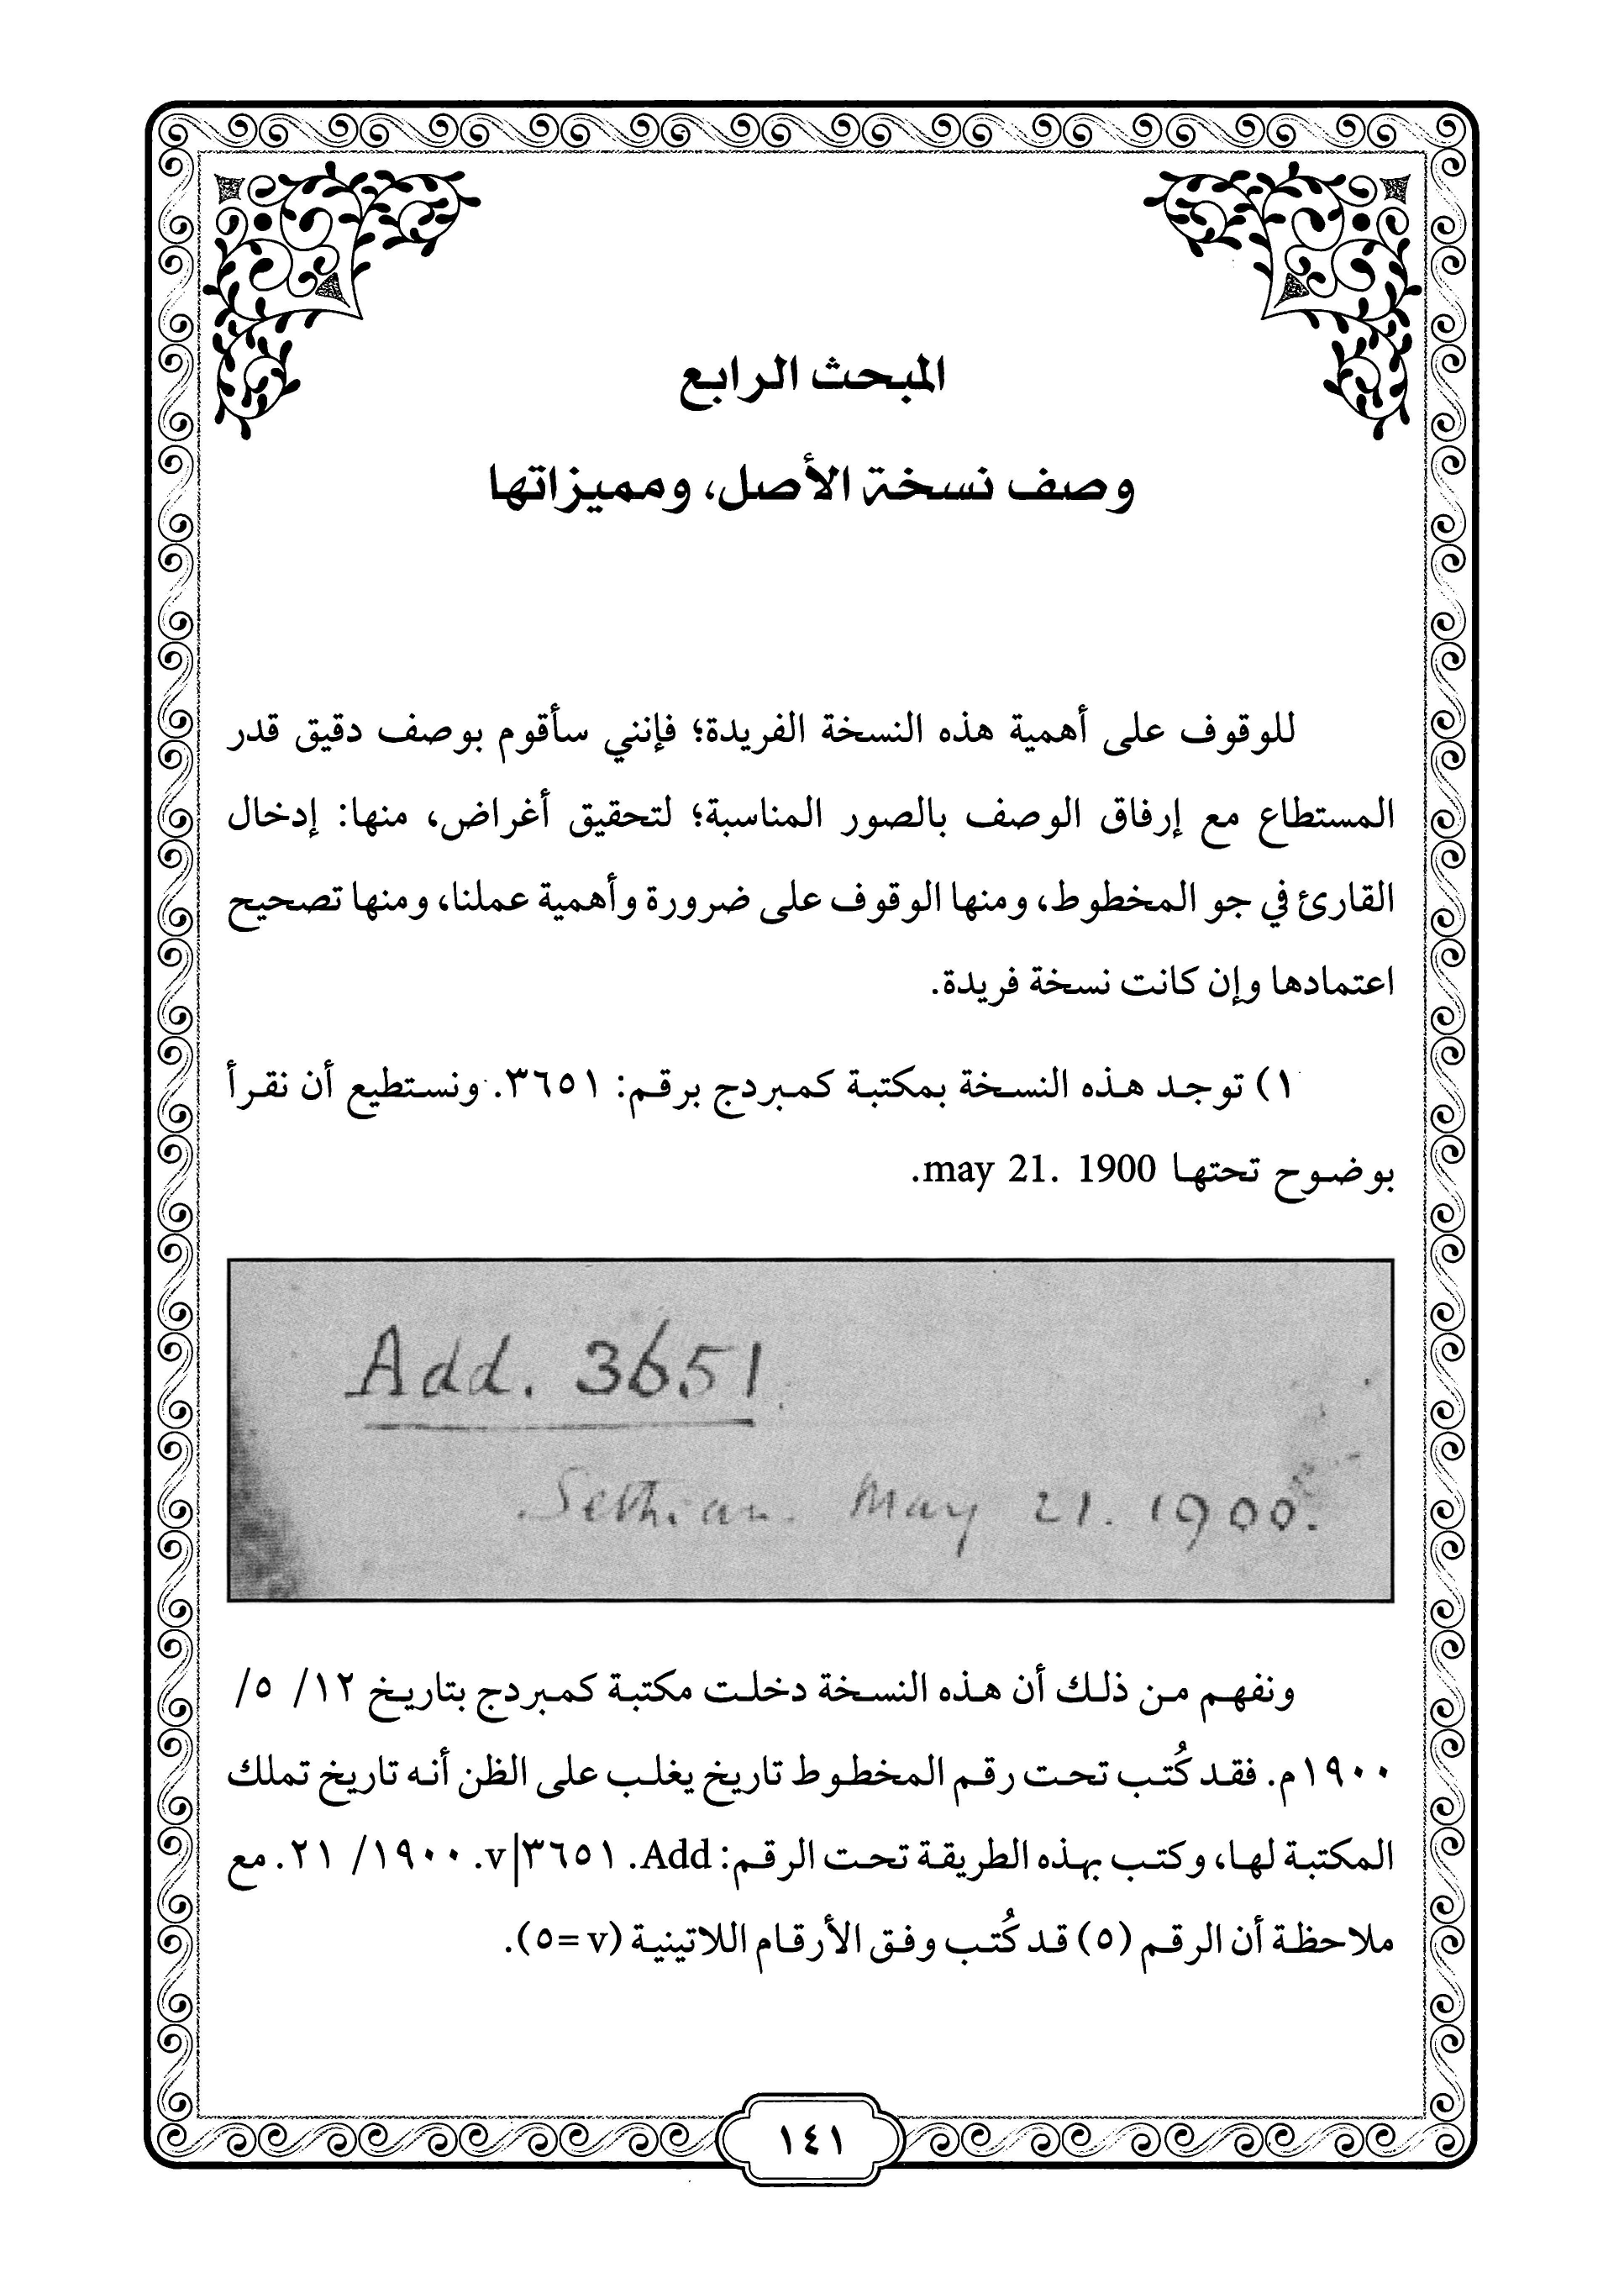 المبحث الرابع
وصف نسخة الأصل، ومميزاتها
للوقوف على أهمية هذه النسخة الفريدة؛ فإنني سأقوم بوصف دقيق قدر
المستطاع مع إرفاق الوصف بالصور المناسبة؛ لتحقيق أغراض، منها: إدخال
القارئ في جو المخطوط، ومنها الوقوف على ضرورة وأهمية عملنا، ومنها تصحيح
اعتمادها وإن كانت نسخة فريدة.
١) توجد هذه النسخة بمكتبة كمبردج برقم: ٣٦٥١. ونستطيع أن نقرأ
بوضوح تحتها may 21. 1900.
Add. 3651.
Sethian. May 21. 1900.
ونفهم من ذلك أن هذه النسخة دخلت مكتبة كمبردج بتاريخ ١٢/ ٥/
١٩٠٠م. فقد كُتب تحت رقم المخطوط تاريخ يغلب على الظن أنه تاريخ تملك
المكتبة لها، وكتب بهذه الطريقة تحت الرقم: Add. ٣٦٥١|v. ١٩٠٠/ ٢١. مع
ملاحظة أن الرقم (٥) قد كُتب وفق الأرقام اللاتينية (v=٥).
١٤١